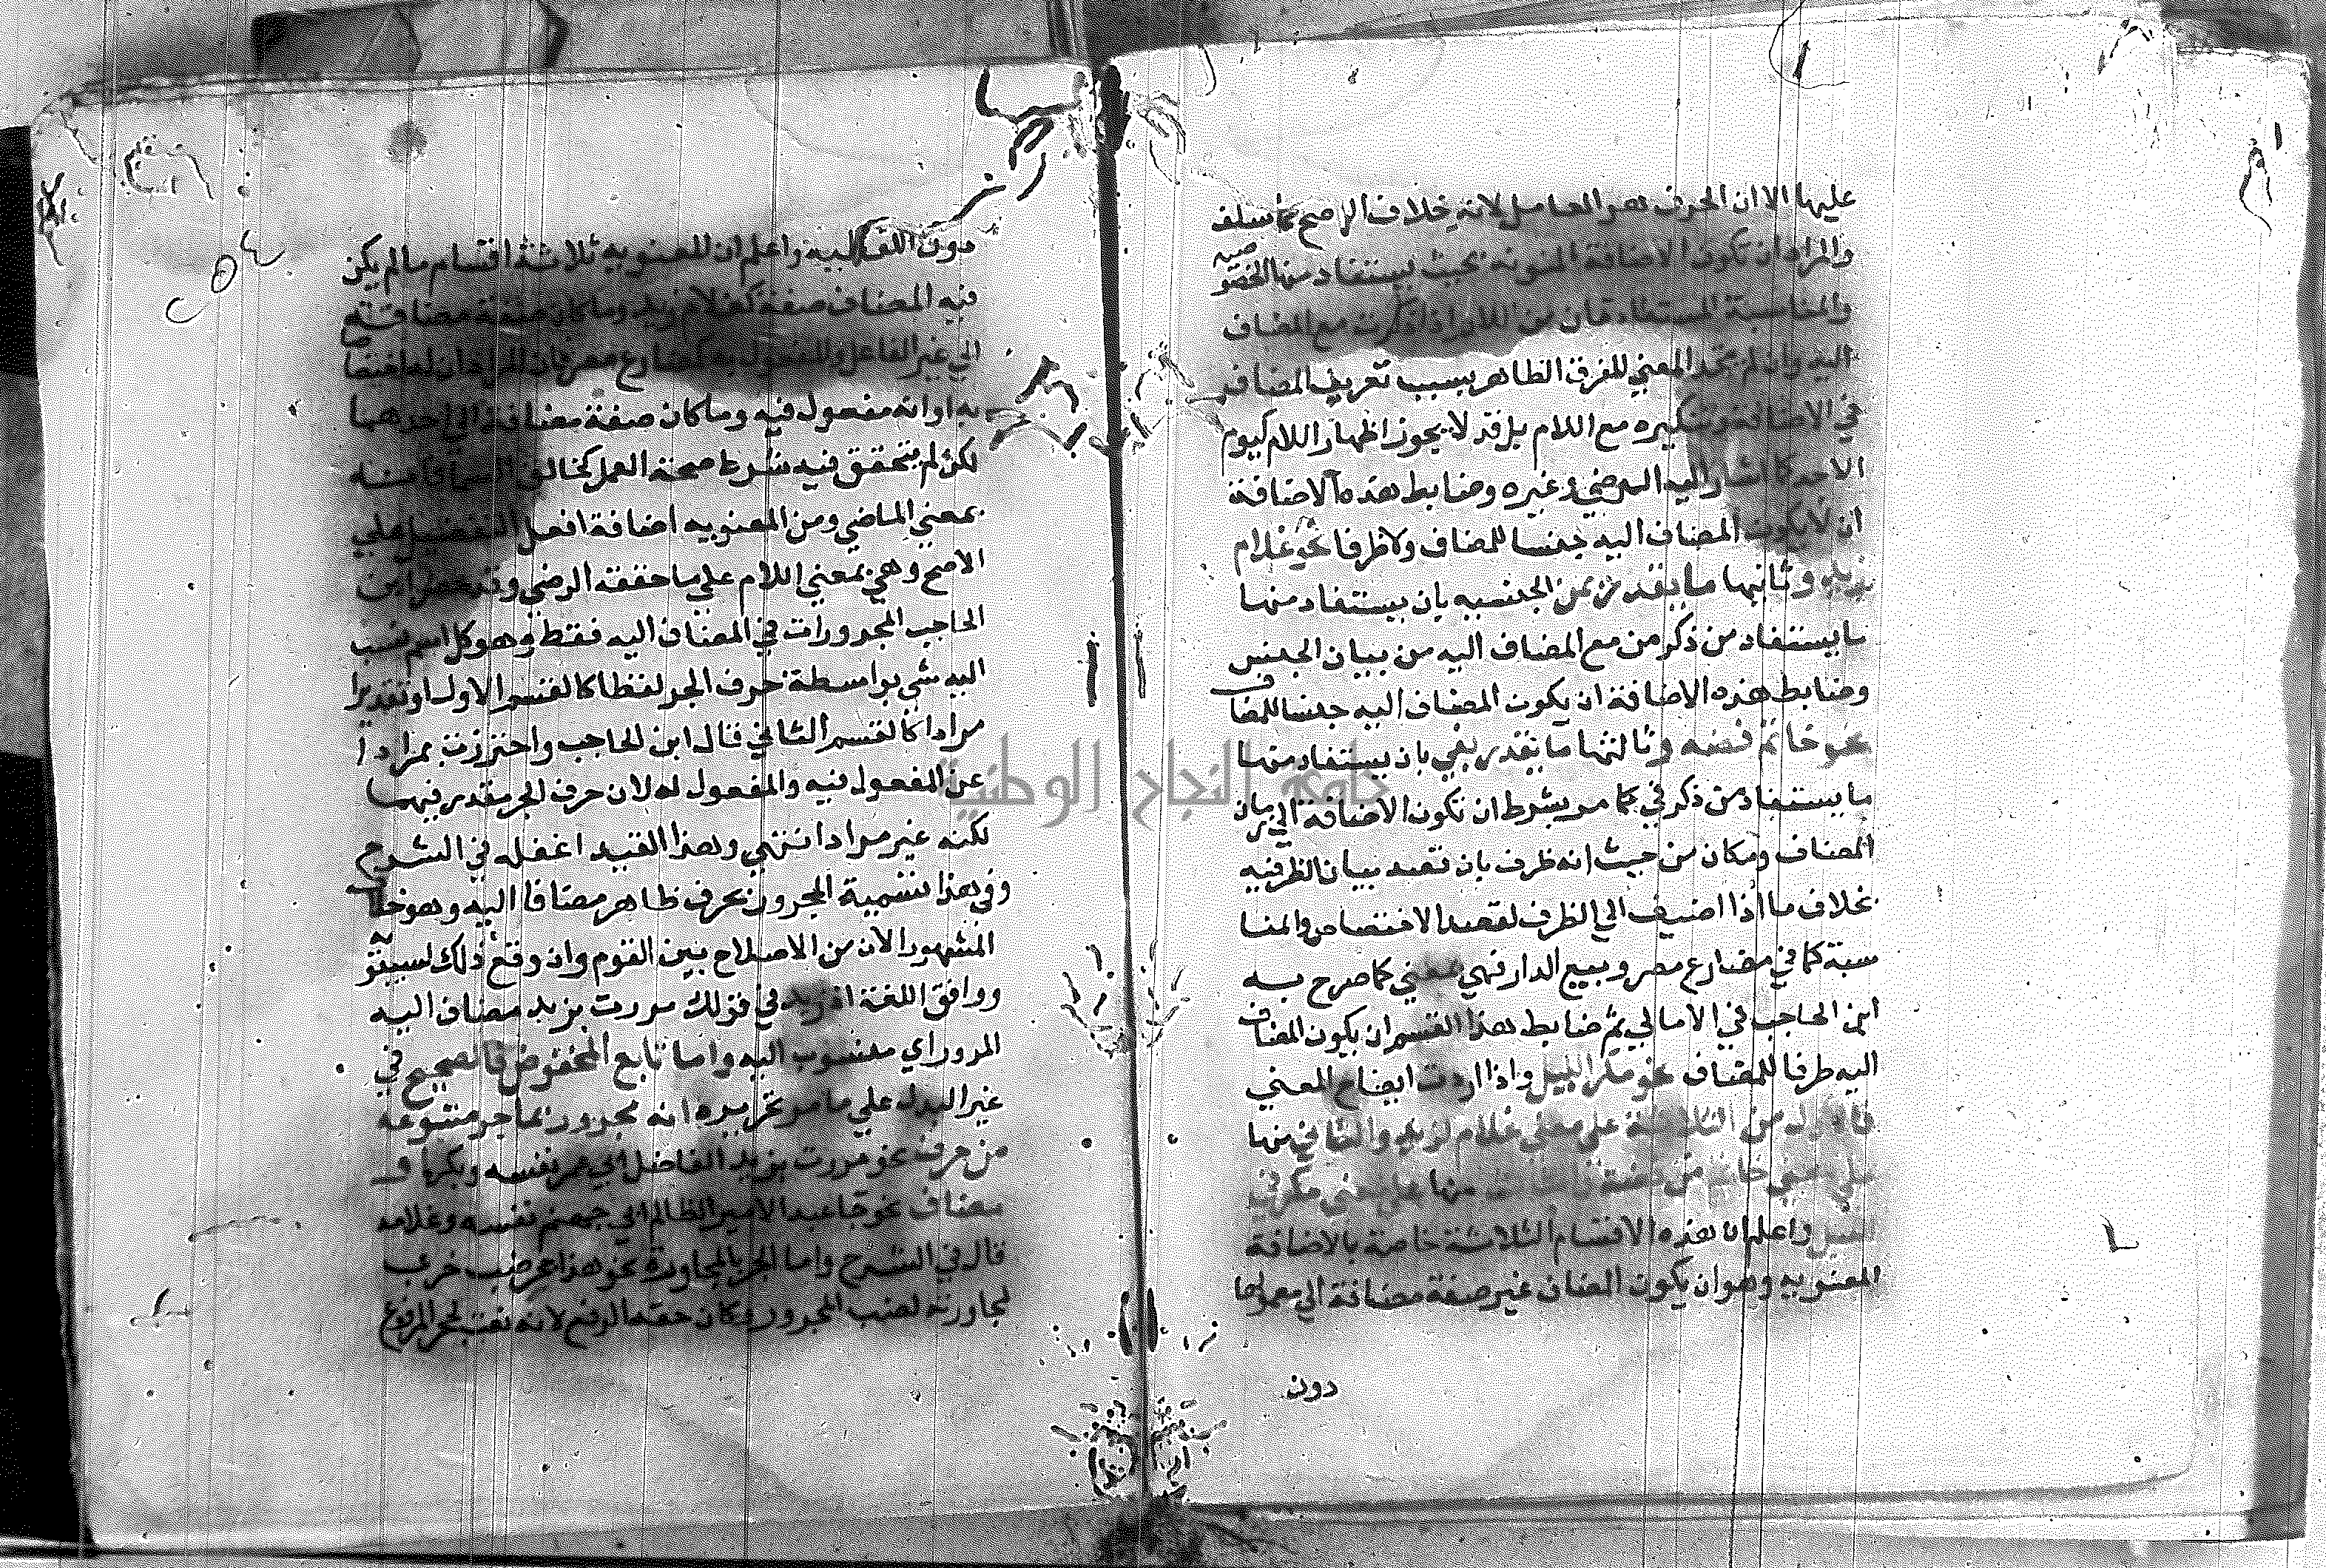 عليها الا ان الحرف هو العامل لانه خلاف الاصح كما سلف
والمراد ان تكون الاضافة المنونه بحيث يستفاد منها الخصوصيه
والمناسبة المستفادتان من اللام اذا ذكرت مع المضاف
اليه وان لم يتحد المعني للفرق الظاهر بسبب تعريف المضاف
في الاضافة وتنكيره مع اللام بل قد لا يجوز اظهار اللام كيوم
الاحد كما اشار اليه الرضي وغيره وضابط هذه الاضافة
ان لا يكون المضاف اليه جنسا للمضاف ولا ظرفا نحو غلام
زيد وثانيها ما يقدر بمن الجنسيه بان يستفاد منها
ما يستفاد من ذكر من مع المضاف اليه من بيان الجنس
وضابط هذه الاضافة ان يكون المضاف اليه جنسا للمضاف
نحو خاتم فضه وثالثها ما يقدر بفي بان يستفاد منها
ما يستفاد من ذكر في مما مر بشرط ان تكون الاضافة الي زمان
المضاف ومكان من حيث انه ظرف بان قصد بيان الظرفيه
بخلاف ما اذا اضيف الي الظرف لقصد الاختصاص والمنا
سبة كما في مضارع مصر وبيع الدار فهي بمعني كما صرح به
ابن الحاجب في الامالي ثم ضابط هذا القسم ان يكون المضاف
اليه ظرفا للمضاف نحو مكر الليل واذا اردت ايضاح المعني
فالاول من الثلاثة علي معني غلام لزيد والثاني منها
علي معني خاتم من فضة والثالث منها علي معني مكر في
الليل واعلم ان هذه الاقسام الثلاثة خاصة بالاضافة
المعنويه وهو ان يكون المضاف غير صفة مضافة الي معمولها
دون
دون اللفظيه واعلم ان للمعنويه ثلاثة اقسام ما لم يكن
فيه المضاف صفة كغلام زيد وما كان صفة مضافة
الي غير الفاعل والمفعول به كمضارع مصر فان المراد ان له اختصاصا
به او انه مفعول فيه وما كان صفة مضافة الي احدهما
لكن لم يتحقق فيه شرط صحة العمل كخالق السما فانه
بمعني الماضي ومن المعنويه اضافة افعل التفضيل علي
الاصح وهي بمعني اللام علي ما حققه الرضي وقد حصر ابن
الحاجب المجرورات في المضاف اليه فقط وهو كل اسم نسب
اليه شي بواسطة حرف الجر لفظا كالقسم الاول او تقديرا
مرادا كالقسم الثاني قال ابن الحاجب واحترزت بمرادا
عن المفعول فيه والمفعول له لان حرف الجر مقدر فيهما
لكنه غير مراد انتهي وهذا القيد اغفله في الشرح
وفي هذا تسمية المجرور بحرف ظاهر مضافا اليه وهو خلاف
المشهور الان من الاصطلاح بين القوم وان وقع ذلك لسيبويه
ووافق اللغة اذ زيد في قولك مررت بزيد مضاف اليه
المرور اي منسوب اليه واما تابع المخفوض فالصحيح في
غير البدل علي ما مر تحريره انه مجرور بما جر متبوعه
من حرف نحو مررت بزيد الفاضل ابي عمر نفسه وبكر او
مضاف نحو جا عبد الامير الظالم ابي جهضم نفسه وغلامه
قال في الشرح واما الجر بالمجاورة نحو هذا جحر ضب خرب
لمجاورته لضب المجرور وكان حقه الرفع لانه نعت لجحر المرفوع